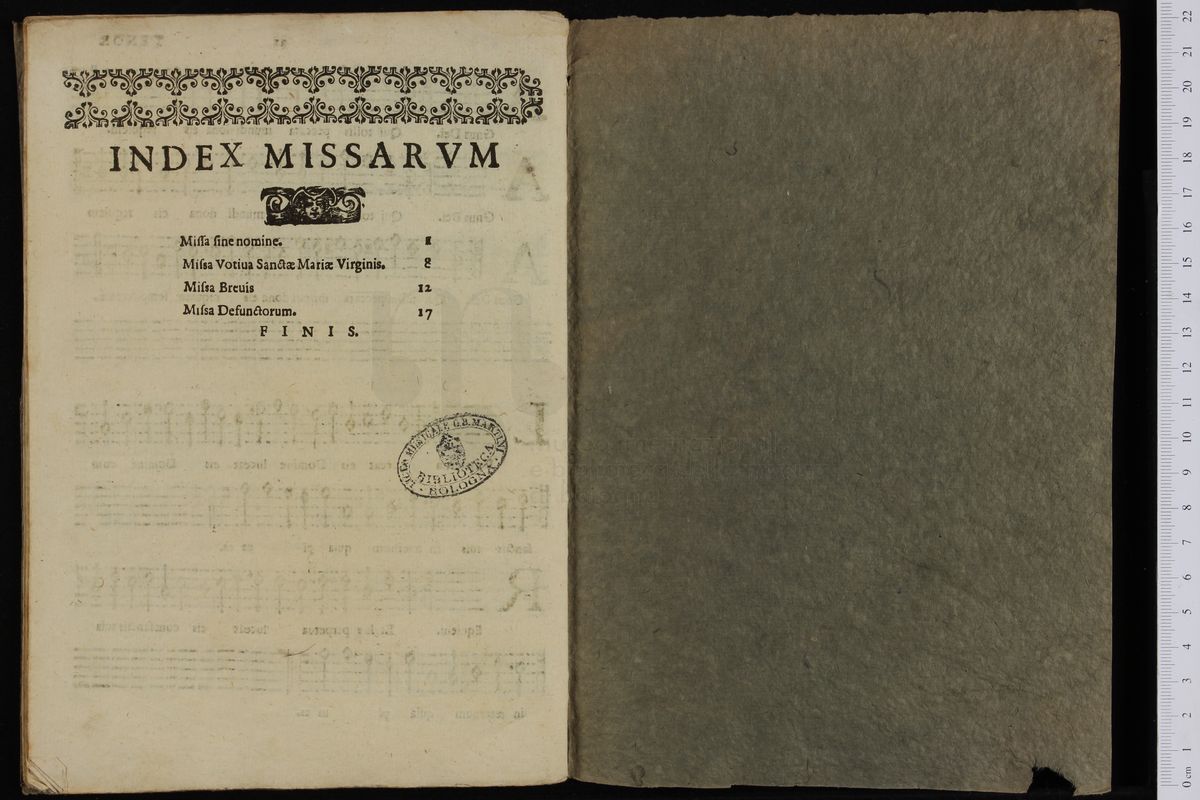 INDEX MISSARVM
Miſſa ſine nomine. 1
Miſsa Votiua Sanctæ Mariæ Virginis. 8
Miſsa Breuis 12
Miſsa Defunctorum. 17
FINIS.
LICEO MUSICALE G. B. MARTINI
BIBLIOTECA
BOLOGNA
22
21
20
19
18
17
16
15
14
13
12
11
10
9
8
7
6
5
4
3
2
1
0 cm